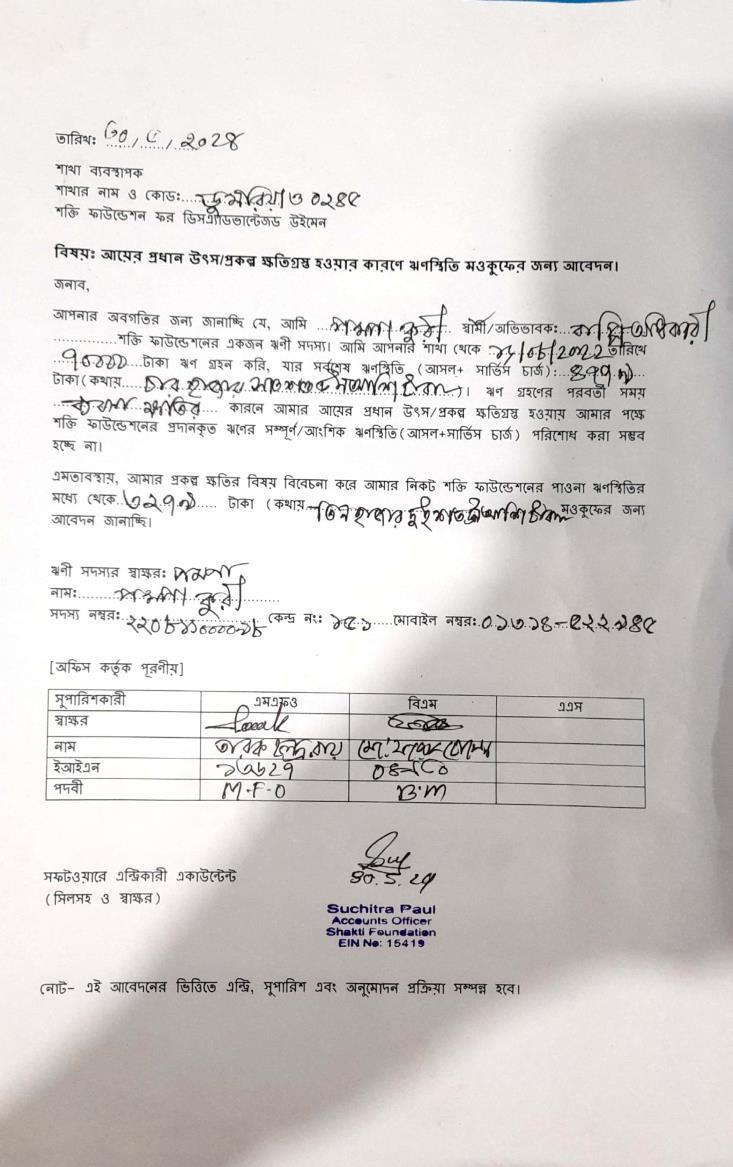 তারিখ: ৩০/৫/২০২৪
শাখা ব্যবস্থাপক
শাখার নাম ও কোড: ডুমুরিয়া ০২৪৫
শক্তি ফাউন্ডেশন ফর ডিসএ্যাডভান্টেজড উইমেন
বিষয়: আয়ের প্রধান উৎস/প্রকল্প ক্ষতিগ্রস্থ হওয়ার কারণে ঋণস্থিতি মওকুফের জন্য আবেদন।
জনাব,
আপনার অবগতির জন্য জানাচ্ছি যে, আমি স্বামী/অভিভাবক: অধিকারী
শক্তি ফাউন্ডেশনের একজন ঋনী সদস্য। আমি আপনার শাখা থেকে তারিখে
টাকা ঋণ গ্রহন করি, যার সর্বশেষ ঋণস্থিতি (আসল+ সার্ভিস চার্জ):
টাকা(কথায় চার হাজার সাতশত )। ঋণ গ্রহণের পরবর্তী সময়
ক্ষতির কারনে আমার আয়ের প্রধান উৎস/প্রকল্প ক্ষতিগ্রস্থ হওয়ায় আমার পক্ষে
শক্তি ফাউন্ডেশনের প্রদানকৃত ঋণের সম্পূর্ণ/আংশিক ঋণস্থিতি(আসল+সার্ভিস চার্জ) পরিশোধ করা সম্ভব
হচ্ছে না।
এমতাবস্থায়, আমার প্রকল্প ক্ষতির বিষয় বিবেচনা করে আমার নিকট শক্তি ফাউন্ডেশনের পাওনা ঋণস্থিতির
মধ্যে থেকে টাকা (কথায় তিন হাজার দুই শত টাকা মওকুফের জন্য
আবেদন জানাচ্ছি।
ঋনী সদস্যর স্বাক্ষর:
নাম:
সদস্য নম্বর: কেন্দ্র নং: মোবাইল নম্বর:
[অফিস কর্তৃক পূরণীয়]
সুপারিশকারী এমএফও বিএম এএস
স্বাক্ষর
নাম তারক চন্দ্র রায়
ইআইএন
পদবী M.F.O B.M
সফটওয়ারে এন্ট্রিকারী একাউন্টেন্ট
(সিলসহ ও স্বাক্ষর)
৩০.5.24
Suchitra Paul
Accounts Officer
Shakti Foundation
EIN No: 15419
নোট- এই আবেদনের ভিত্তিতে এন্ট্রি, সুপারিশ এবং অনুমোদন প্রক্রিয়া সম্পন্ন হবে।